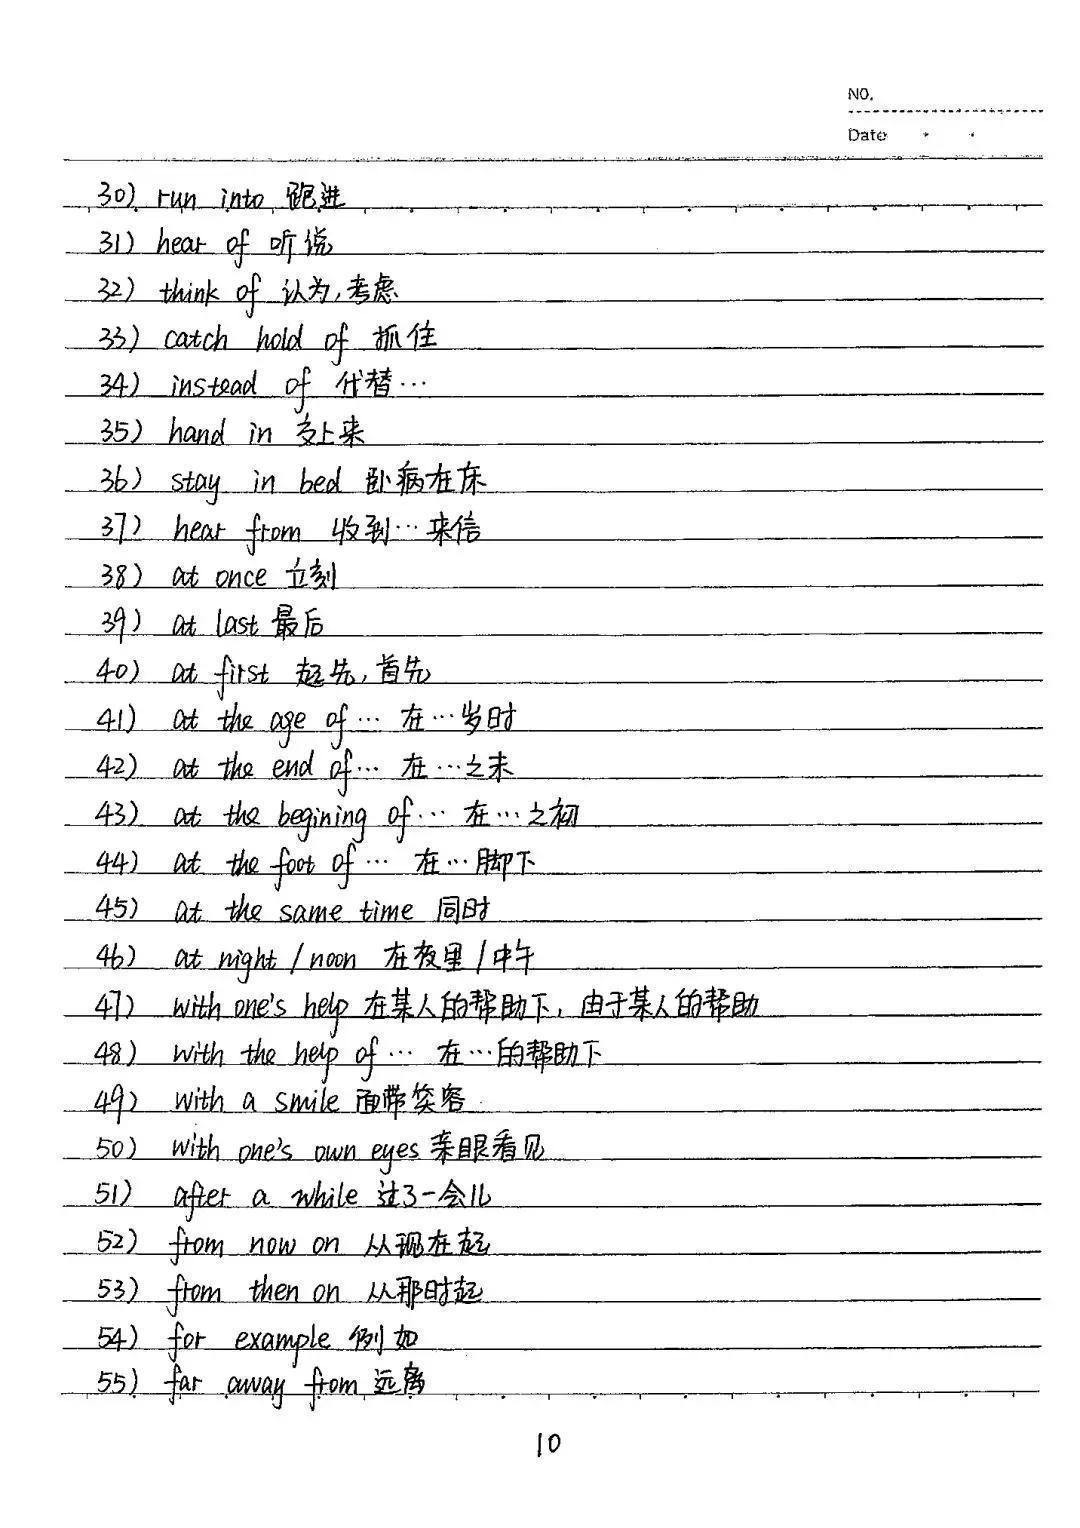 NO.
Date
30) run into 跑进
31) hear of 听说
32) think of 认为,考虑
33) catch hold of 抓住
34) instead of 代替…
35) hand in 交上来
36) stay in bed 卧病在床
37) hear from 收到…来信
38) at once 立刻
39) at last 最后
40) at first 起先,首先
41) at the age of… 在…岁时
42) at the end of… 在…之末
43) at the begining of… 在…之初
44) at the foot of… 在…脚下
45) at the same time 同时
46) at night / noon 在夜里 / 中午
47) with one's help 在某人的帮助下, 由于某人的帮助
48) with the help of… 在…的帮助下
49) with a smile 面带笑容
50) with one's own eyes 亲眼看见
51) after a while 过了一会儿
52) from now on 从现在起
53) from then on 从那时起
54) for example 例如
55) far away from 远离
10